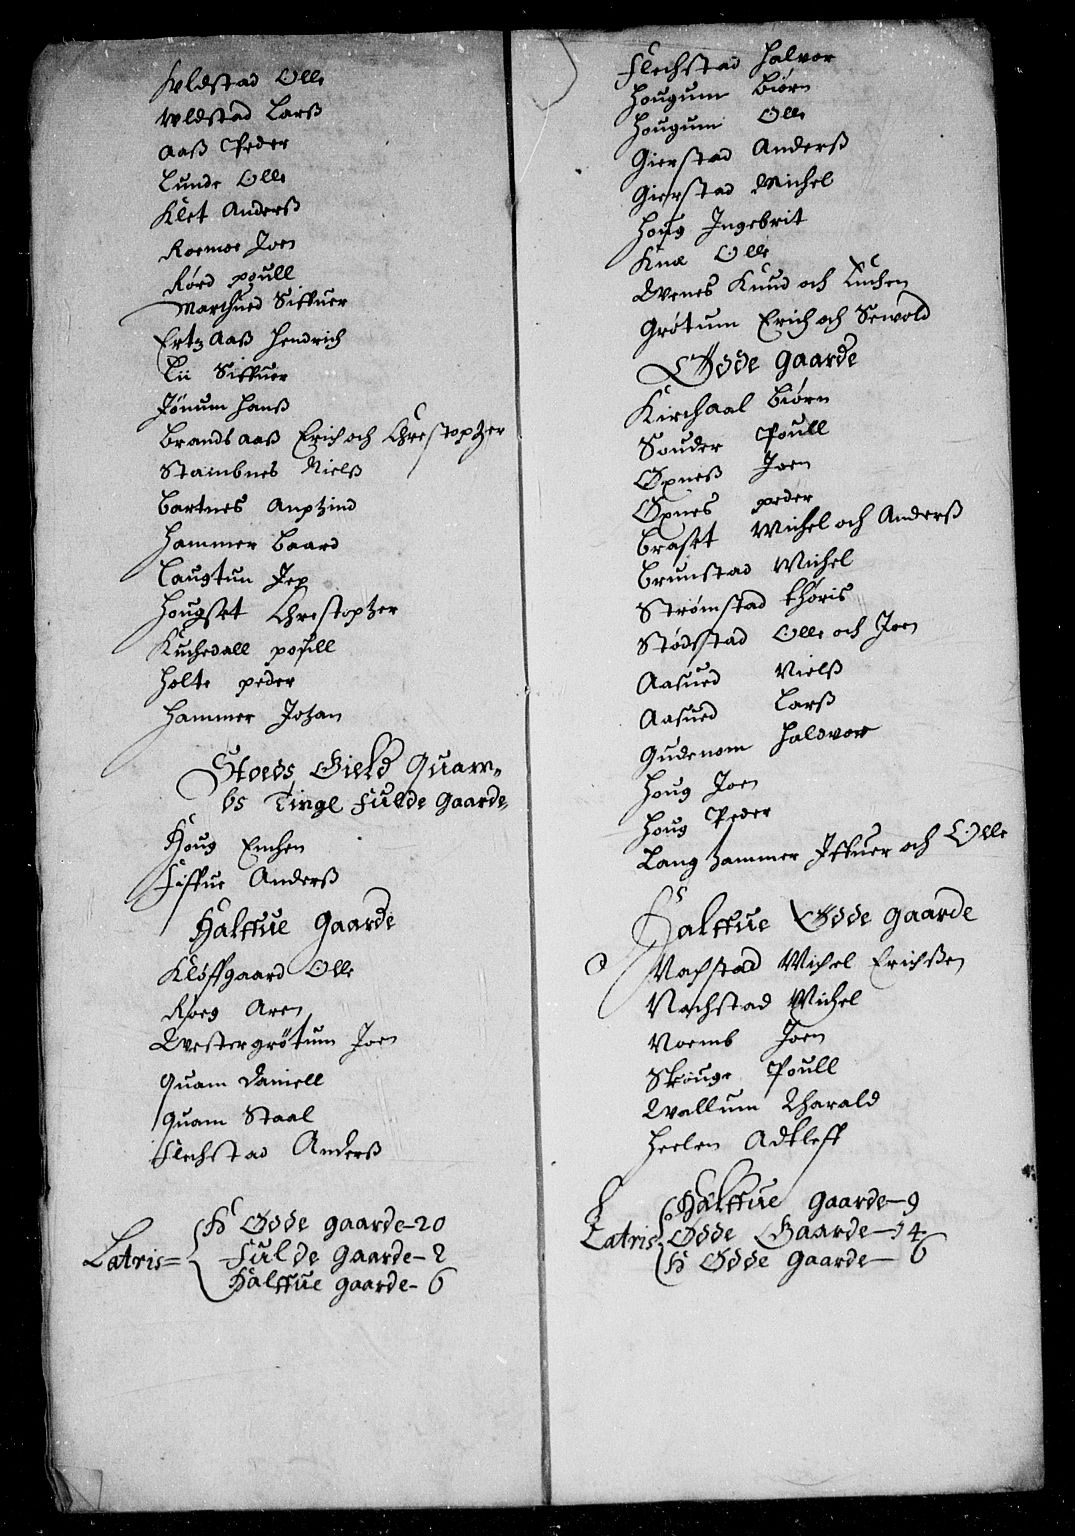 Huldstad Olle
Wldstad Larß
Aaß Peder
Lunde Olle
Klet Anderß
Roemoe Joen
Rörd poull
Marthued Siffuer
Ertz Aaß Hendrich
Lii Siffuer
Jönum Hanß
Brands aaß Erich och Chrestopher
Stambnes Nielß
Bartnes Anphind
Hammer Baard
Laugtun Jep
Hougset Chrestopher
Kuchedall poull
Holte peder
Hammer Johan
Stoeds Gield Quam-
bs Tingl Fulde Gaarde
Houg Emhen
Fiffue Anderß
Halffue Gaarde
Klöffgaard Olle
Roeg Aren
Westergrötum Joen
Quam Daniell
Quam Staal
Flechstad Anderß
Latris=
H Ødde gaarde-20
Fulde Gaarde-2
Halffue gaarde-6
Flechstad Halvor
Hougum Biörn
Hougum Olle
Gierstad Anderß
Gierstad Michel
Houg Ingebrit
Kna Olle
Wenes Knud och Enchen
Grötum Erich och Sewold
Ødde Gaarde
Kirchaal Biörn
Souder Poull
Øpneß Joen
Øpnes peder
Braset Michel och Anderß
Brunstad Michel
Strömstad thöris
Stödstad Olle och Joen
Aasued Nielß
Aasued Larß
Gudenom Haldvor
Houg Joen
Houg Peder
Lang hammer Iffuer och Olle
Halffue Ødde gaarde
Nachstad Michel Erichßen
Nachstad Michel
Noemb Joen
Skouge Poull
Wallum Charald
Heelen Adtleff
Latris
Halffue Gaarde-9
Ødde Gaarde-14
H Ødde Gaarde-6